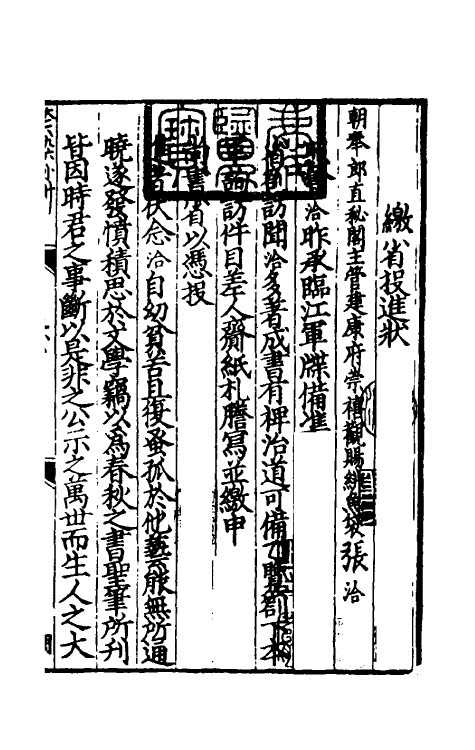 繳省投進狀
朝奉郎直祕閣主管建康府崇禧觀賜緋魚袋張洽
洽昨承臨江軍牒備准
訪聞洽多著成書有裨治道可備乙覽劄本
訪件目差人齎紙札謄寫並繳申
書省以憑投
伏念洽自幼貧苦且復蚤孤於他藝能無所通
曉遂發憤積思於文學竊以為春秋之書聖筆所刊
皆因時君之事斷以是非之公示之萬世而生人之大